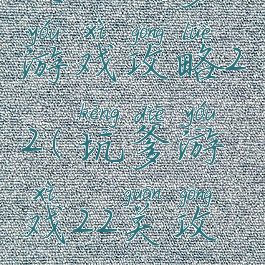 yóu xì gōng lüè
游戏攻略2
kēng diē yóu
2(坑爹游
xì guān gōng
戏22关攻